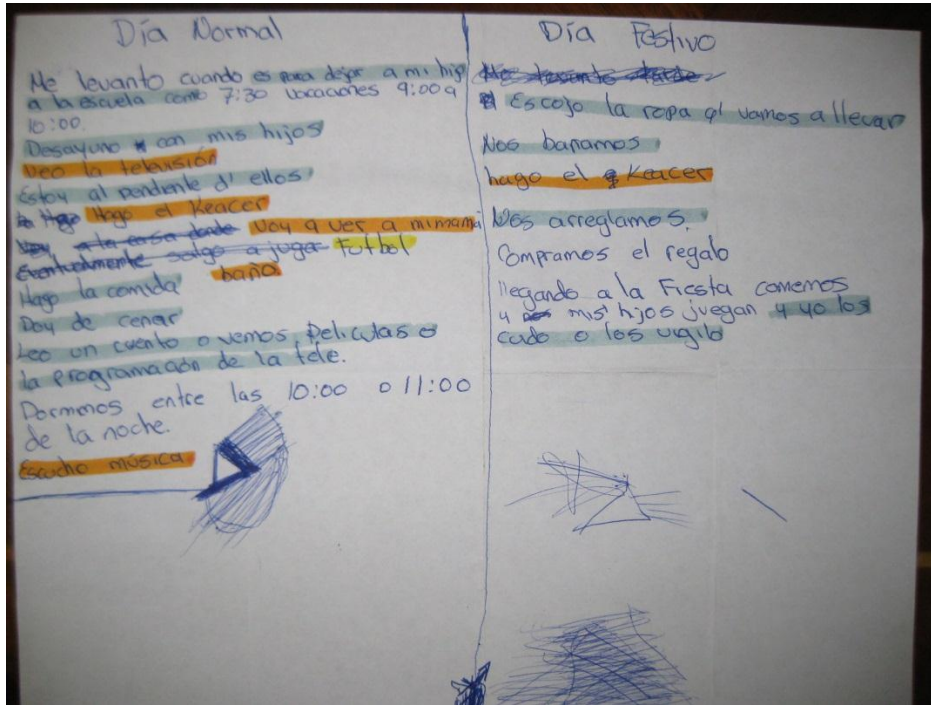 Día Normal
Me levanto cuando es para dejar a mi hijo
a la escuela como 7:30 vacaciones 9:00 a
10:00.
Desayuno con mis hijos
Veo la televisión
Estoy al pendiente d' ellos
Hago el Keacer
Voy a ver a mi mamá
Eventualmente salgo a jugar Futbol
baño
Hago la comida
Doy de cenar
Leo un cuento o vemos Peliculas o
la programación de la tele.
Dormimos entre las 10:00 o 11:00
de la noche.
Escucho música
Día Festivo
Me levanto tarde
Escojo la ropa q' vamos a llevar
Nos bañamos
hago el Keacer
Nos arreglamos.
Compramos el regalo
llegando a la Fiesta comemos
y mis hijos juegan y yo los
cuido o los vigilo